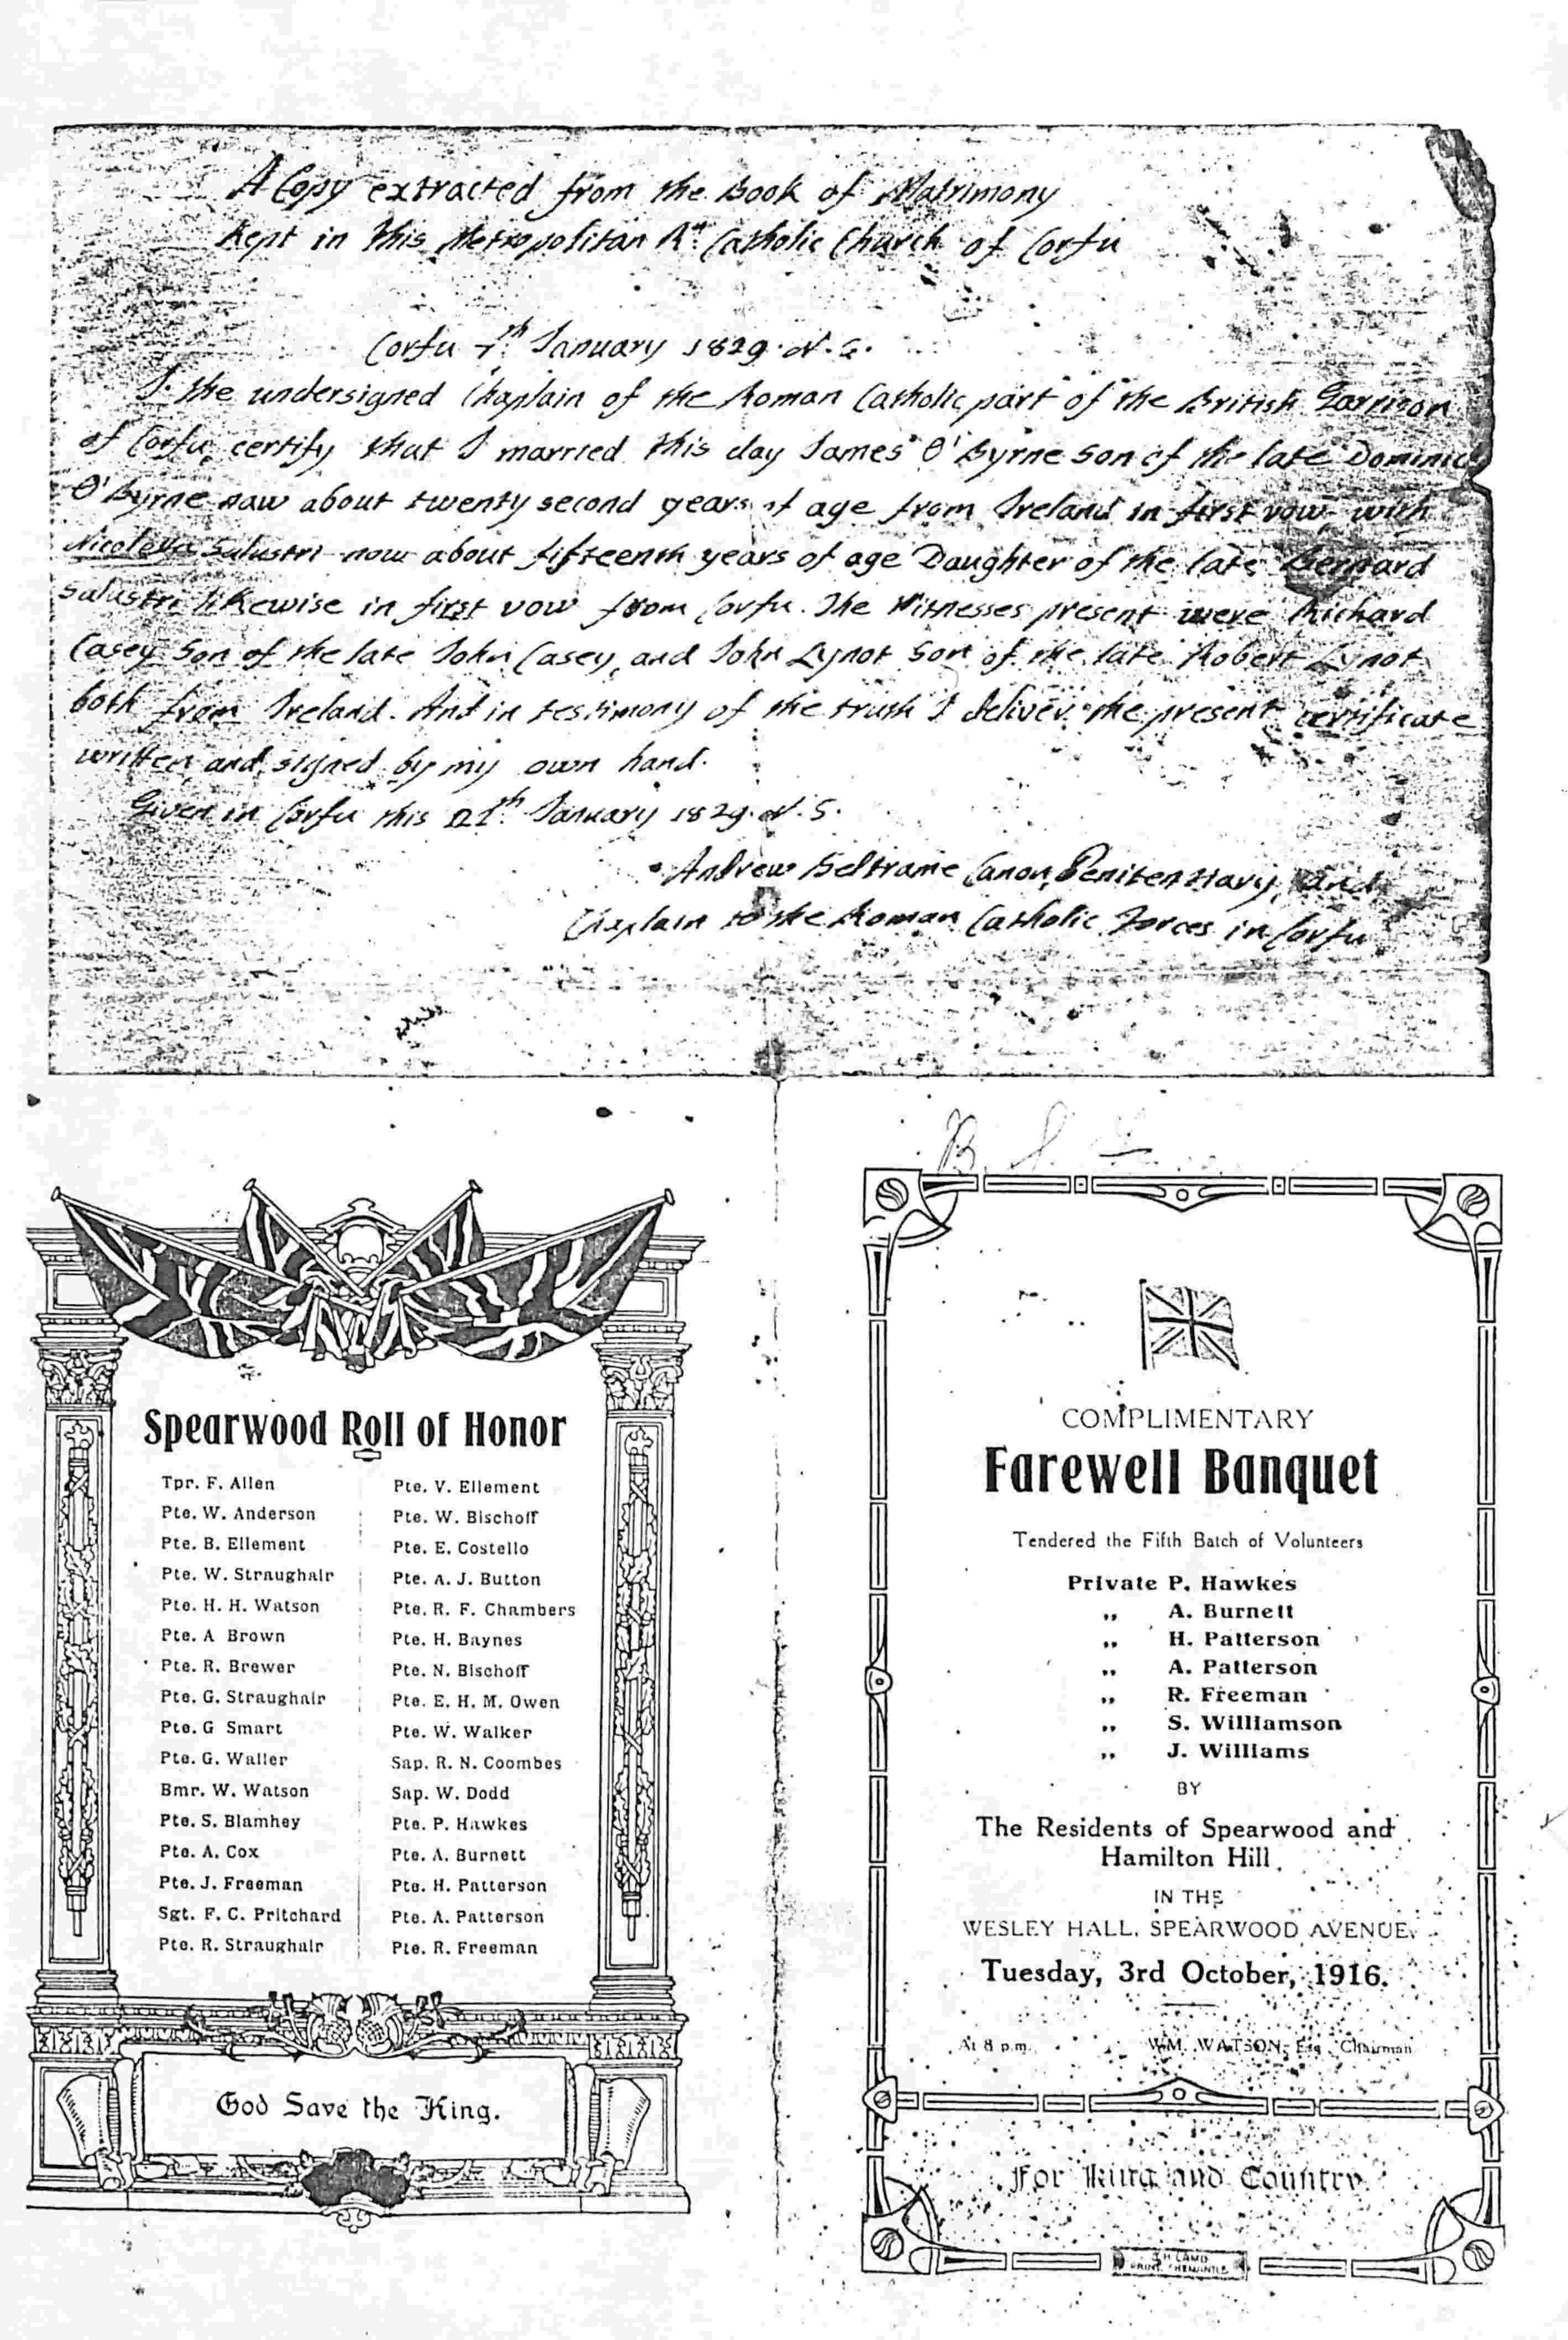 A Copy extracted from the Book of Matrimony
Kept in this Metropolitan Rn. Catholic Church of Corfu
Corfu 7th January 1829. N. S.
I the undersigned Chaplain of the Roman Catholic part of the British Garrison
of Corfu, certify that I married this day James O'Byrne son of the late Dominick
O'Byrne naw about twenty second years of age from Ireland in first vow with
Salustri now about fifteenth years of age Daughter of the late Bernard
Salustri likewise in first vow from Corfu. The Witnesses present were Richard
Casey Son of the late John Casey, and John Lynot Son of the late Robert Lynot
both from Ireland. And in testimony of the truth I deliver the present certificate
written and signed by my own hand.
Given in Corfu this January 1829. N. S.
Andrew Beltrame Canon, Penitentiary, and
Chaplain to the Roman Catholic Forces in Corfu
B.
Spearwood Roll of Honor
Tpr. F. Allen
Pte. W. Anderson
Pte. B. Ellement
Pte. W. Straughair
Pte. H. H. Watson
Pte. A Brown
Pte. R. Brewer
Pte. G. Straughair
Pte. G Smart
Pte. G. Waller
Bmr. W. Watson
Pte. S. Blamhey
Pte. A. Cox
Pte. J. Freeman
Sgt. F. C. Pritchard
Pte. R. Straughair
Pte. V. Ellement
Pte. W. Bischoff
Pte. E. Costello
Pte. A. J. Button
Pte. R. F. Chambers
Pte. H. Baynes
Pte. N. Bischoff
Pte. E. H. M. Owen
Pte. W. Walker
Sap. R. N. Coombes
Sap. W. Dodd
Pte. P. Hawkes
Pte. A. Burnett
Pte. H. Patterson
Pte. A. Patterson
Pte. R. Freeman
God Save the King.
COMPLIMENTARY
Farewell Banquet
Tendered the Fifth Batch of Volunteers
Private P. Hawkes
„ A. Burnett
„ H. Patterson
„ A. Patterson
„ R. Freeman
„ S. Williamson
„ J. Williams
BY
The Residents of Spearwood and
Hamilton Hill
IN THE
WESLEY HALL, SPEARWOOD AVENUE,
Tuesday, 3rd October, 1916.
At 8 p.m. WM. WATSON, Esq., Chairman
For King and Country
LAMB
PRINT, FREMANTLE